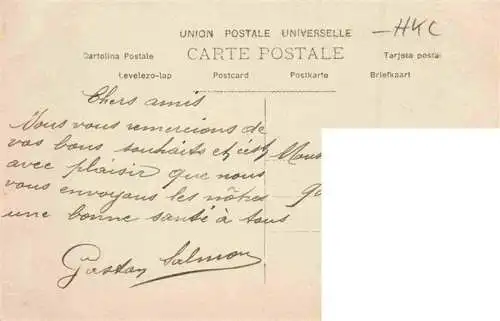 UNION POSTALE UNIVERSELLE
CARTE POSTALE
Cartolina Postale
Tarjeta postal
Levelezo-lap Postcard Postkarte Briefkaart
Chers amis
Vous vous remercions de
vos bons souhaits et c'est
avec plaisir que nous
vous envoyons les nôtres
une bonne santé à tous
Gaston Salmon